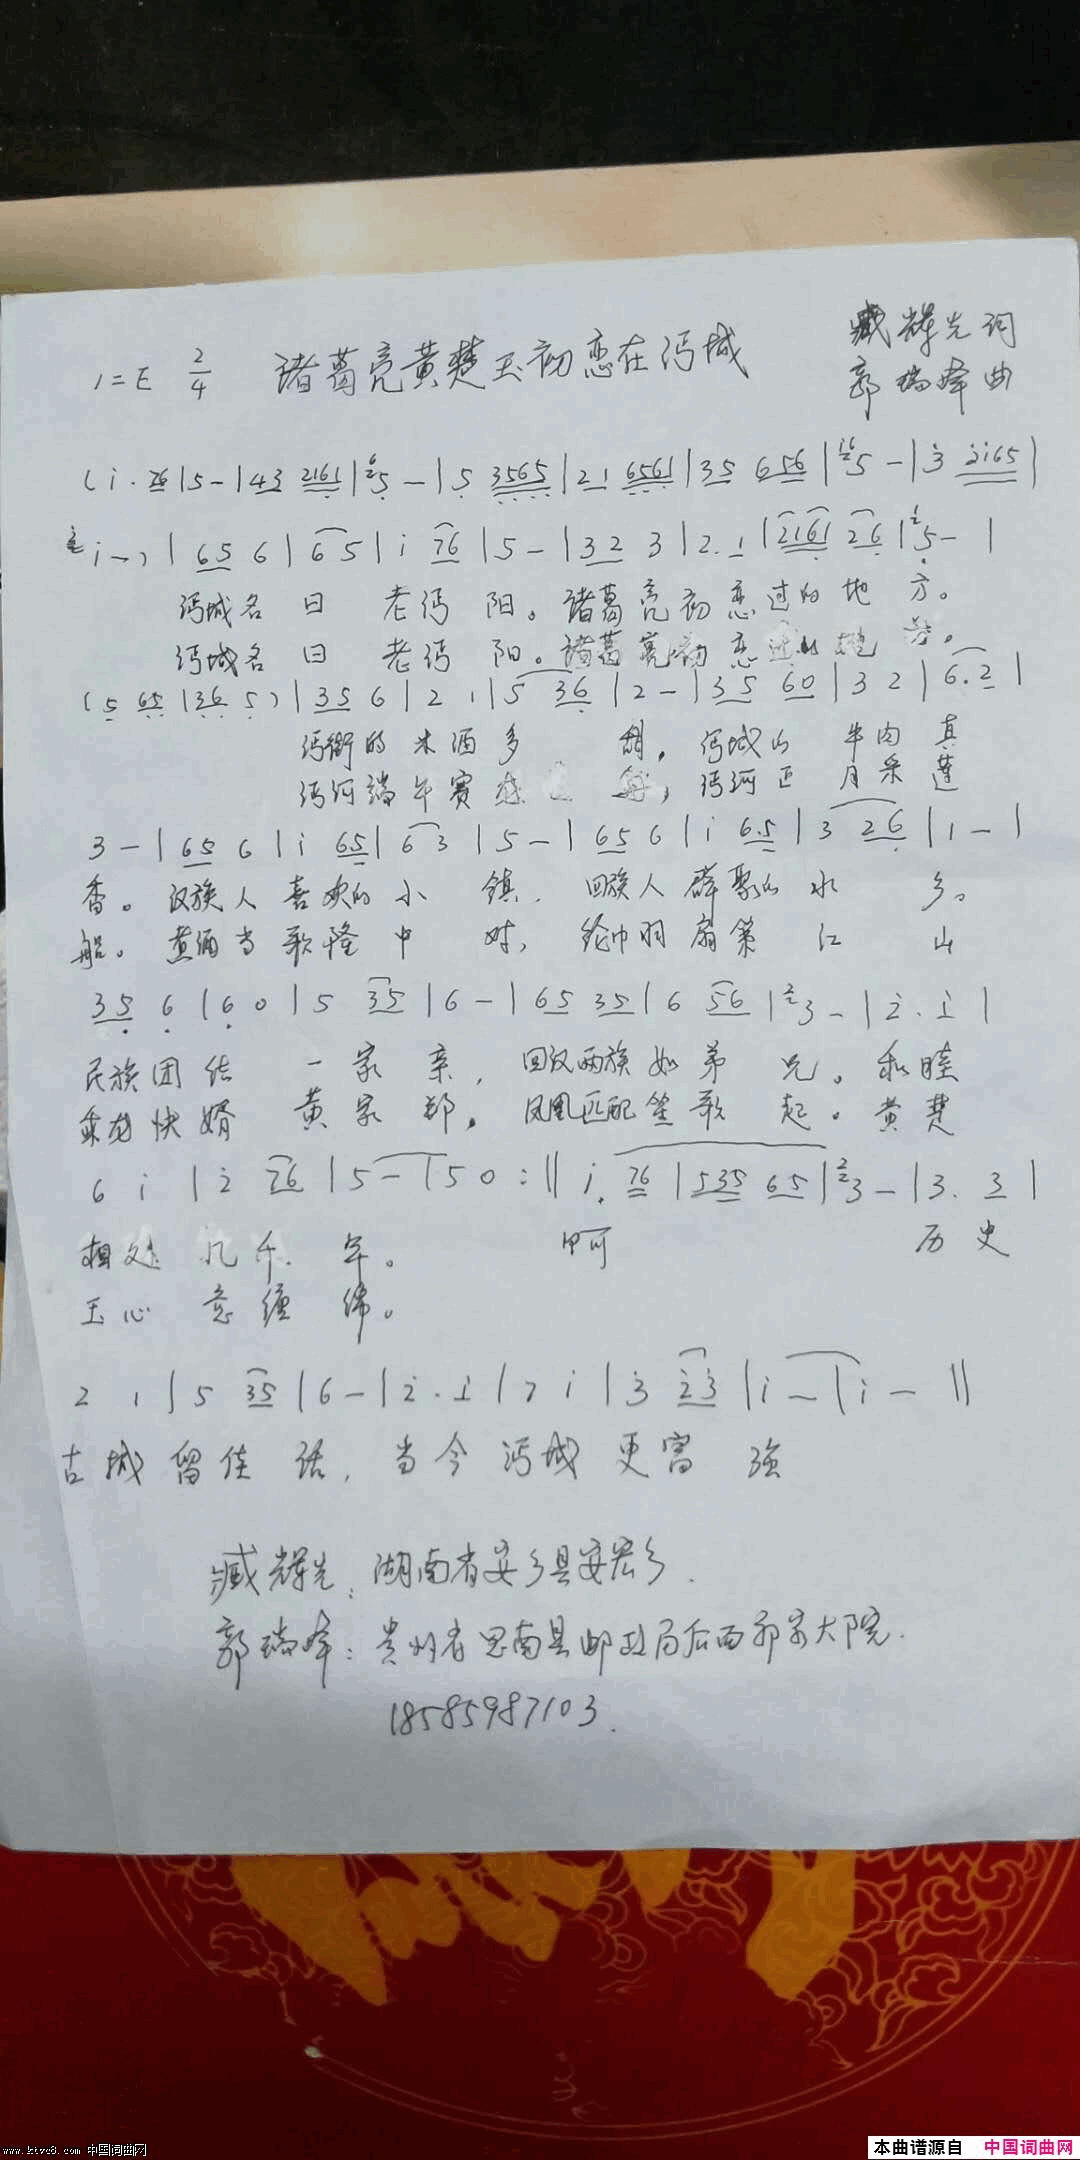 1=E 2/4 诸葛亮黄楚玉初恋在沔城 臧辉先词
郭瑞峰曲
(i. 76|5-|43 2161|5-|5 3565|21 6561|35 656|5-|3 2i65|
i-)|65 6|6 5|i 76|5-|32 3|2. 1|2161 26|5-|
沔城名 曰 老沔 阳。诸葛亮初恋过的地 方。
沔城名 曰 老沔 阳。诸葛亮初恋过的地 方。
(5 65|36 5)|35 6|2 1|5 36|2-|35 60|32|6.2|
沔街的米酒多 甜,沔城山 牛肉真
沔河端午赛 沔河正月采莲
3-|65 6|i 65|63|5-|65 6|i 6.5|3 26|1-|
香。汉族人喜欢的小 镇,回族人群聚的水 乡。
船。煮酒当歌隆中 对,纶巾羽扇策江 山
35 6|60|5 35|6-|65 35|6 56|3-|2. i|
民族团结 一家亲,回汉两族如弟 兄。和睦
乘龙快婿 黄家郎,凤凰匹配笙歌 起。黄楚
6 i|2 76|5-|50:‖i. 76|535 65|3-|3. 3|
相处 几千 年。 呷呵 历史
玉心 意缠 绵。
2 1|5 35|6-|2. i|7 i|3 23|i-|i-‖
古城留佳 话,当今沔城更富 强
臧辉先:湖南省安乡县安宏乡.
郭瑞峰:贵州省思南县邮政局后面郭家大院.
18585987103.
www.ktvc8.com 中国词曲网
本曲谱源自 中国词曲网